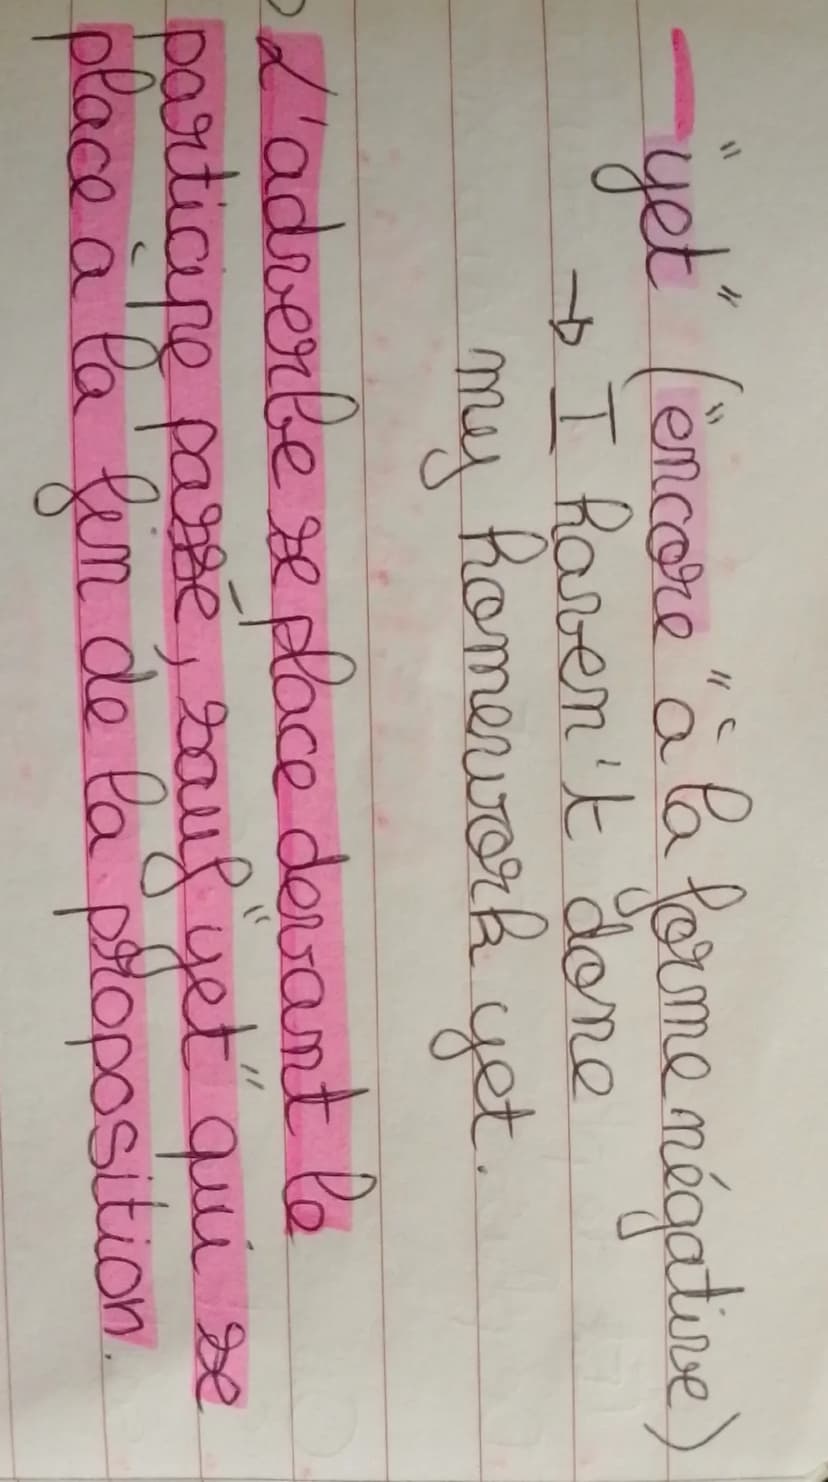 - "yet" ("encore" à la forme négative)
→ I haven't done
my homework yet.
L'adverbe se place devant le
participe passé, sauf "yet" qui se
place à la fin de la proposition.